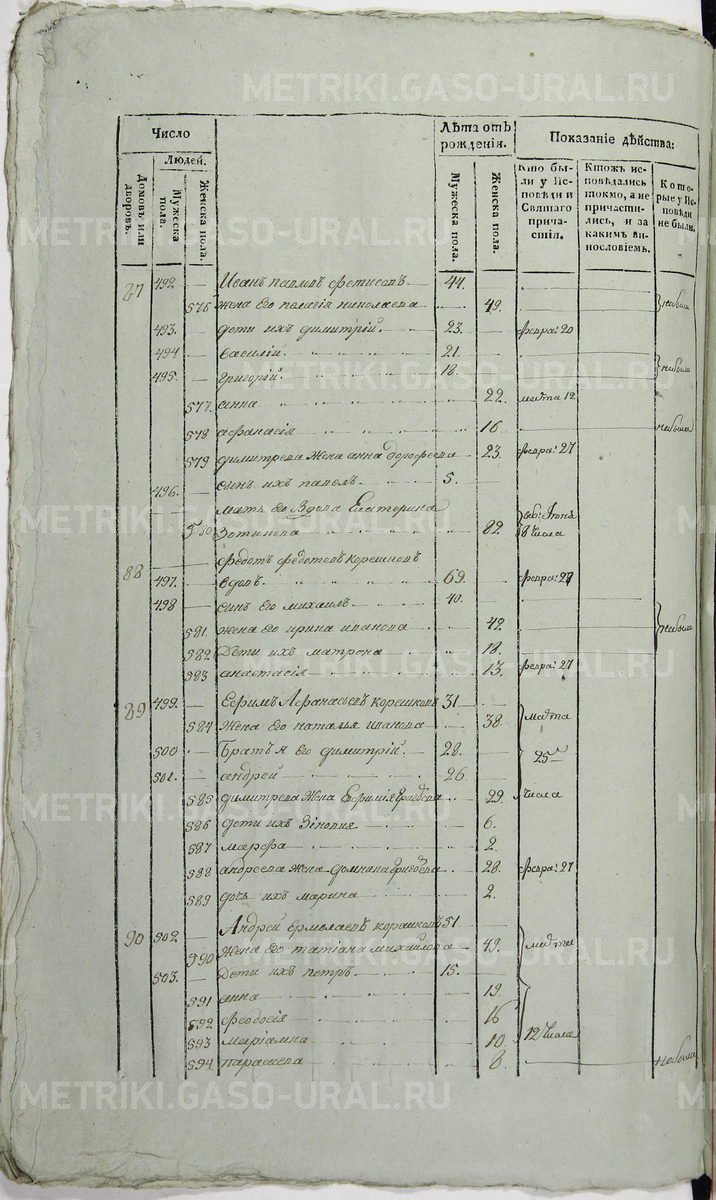 METRIKI.GASO-URAL.RU
Число
Людей.
Домовъ или дворовъ.
Мужеска пола.
Женска пола.
Лѣта отъ рожденія.
Мужеска пола.
Женска пола.
Показаніе дѣйства:
Кто были у Исповѣди и Святаго причастія.
Ктожъ исповѣдались токмо, а не причастились, и за какимъ винословіемъ.
Которые у Исповѣди не были.
492 Иванъ павловъ фотиевъ 44
576 жена Его пелагія николаева 49 небыли
493. дети ихъ димитрій 23. февра: 20
494 василій 21.
495. григорій 18. небыли
577. анна 22. марта 12
578 афанасія 16 небыла
579 димитрева жена анна дорофеева 23. февра: 27
496. сынъ ихъ павелъ 5.
мать его вдова Екатерина
580 зотикова 82. Июня 8 числа
88 федотъ федотовъ
497. вдовъ 69. февра: 27
498 сынъ его михаилъ 40.
581. жена его ирина иванова 42 небыли
582 Дети ихъ матрона 18.
583 анастасія 13. февра: 27
89 499. Ефимъ Афанасьевъ корешковъ 31
584 жена Его наталья иванова 38. марта
500 Братья его димитрій 28. 25го
501. андрей 26
585 димитрева жена Ефимія 29. числа
586 дети ихъ Зиновия 6.
587 марфа 2.
588 андреева жена домнина 28. февра: 27
589 дочь ихъ марина 2.
90 502. Андрей ермолаевъ корешковъ 51
590 Жена Его татіана михайлова 49. марта
503. Дети ихъ петръ 15.
591 анна 19.
592 феодосія 16
593 маріамна 10 12 числа
594 параскева 8. небыла